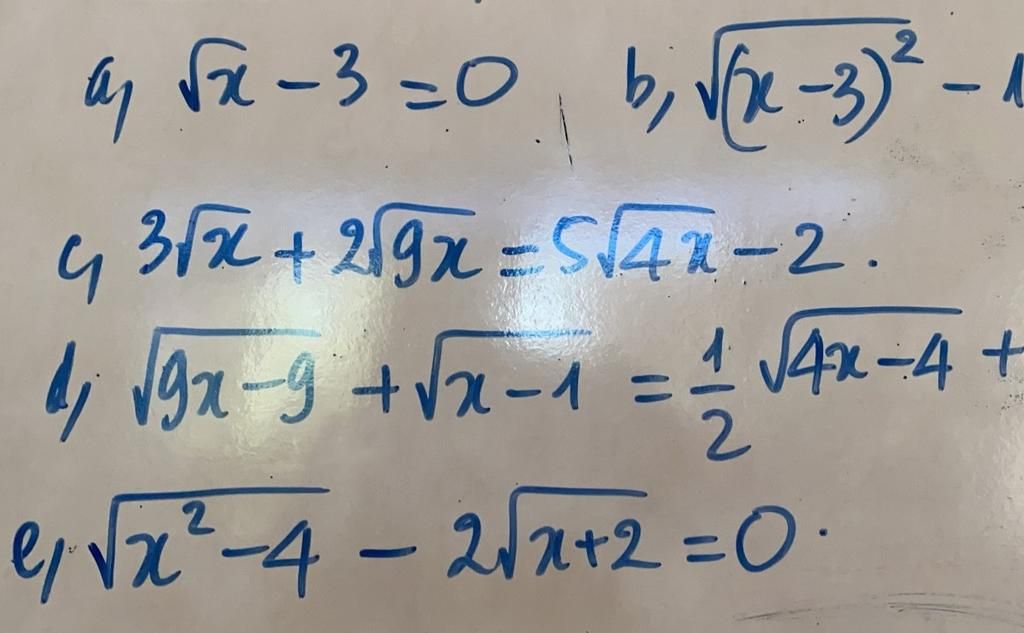 a, √x - 3 = 0 b, √(x-3)² -
c, 3√x + 2√9x = 5√4x - 2.
d, √9x-9 + √x-1 = 1/2 √4x-4 +
e, √x²-4 - 2√x+2 = 0.